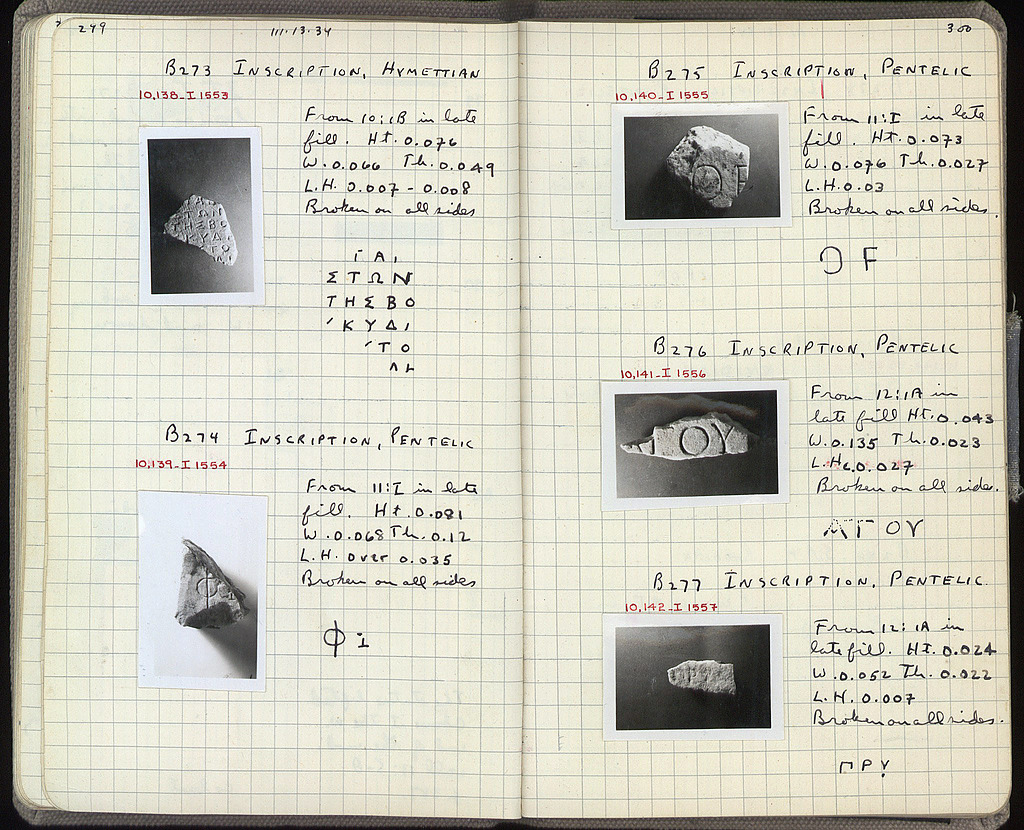 299
111.13.34
B273 INSCRIPTION, HYMETTIAN
10,138-I 1553
From 10:1B in late
fill. Ht. 0.076
W. 0.066 Th. 0.049
L.H. 0.007 - 0.008
Broken on all sides
ΣΤΩΝ
ΤΗΣΒΟ
ΚΥΔΙ
ΤΟ
B274 INSCRIPTION, PENTELIC
10,139-I 1554
From 11:I in late
fill. Ht. 0.081
W. 0.068 Th. 0.12
L.H. over 0.035
Broken on all sides
Φ Ι
300
B275 INSCRIPTION, PENTELIC
10,140-I 1555
From 11:I in late
fill. Ht. 0.073
W. 0.076 Th. 0.027
L.H. 0.03
Broken on all sides.
Ο F
B276 INSCRIPTION, PENTELIC
10,141-I 1556
From 12:1A in
late fill Ht. 0.043
W. 0.135 Th. 0.023
L.H. 0.027
Broken on all sides.
ΑΓ ΟΥ
B277 INSCRIPTION, PENTELIC.
10,142-I 1557
From 12:1A in
late fill. Ht. 0.024
W. 0.052 Th. 0.022
L.H. 0.007
Broken on all sides.
ΠΡΥ